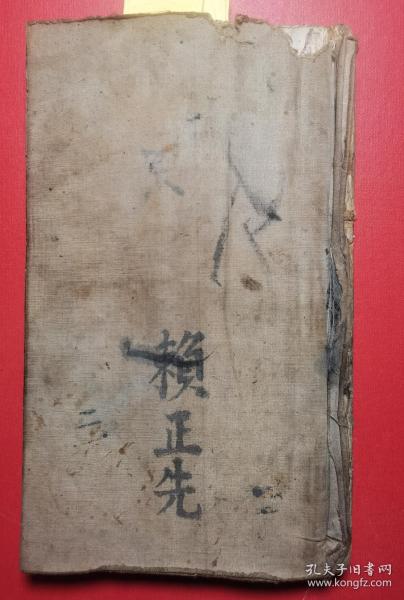 賴正先
二
孔夫子旧书网
www.kongfz.com